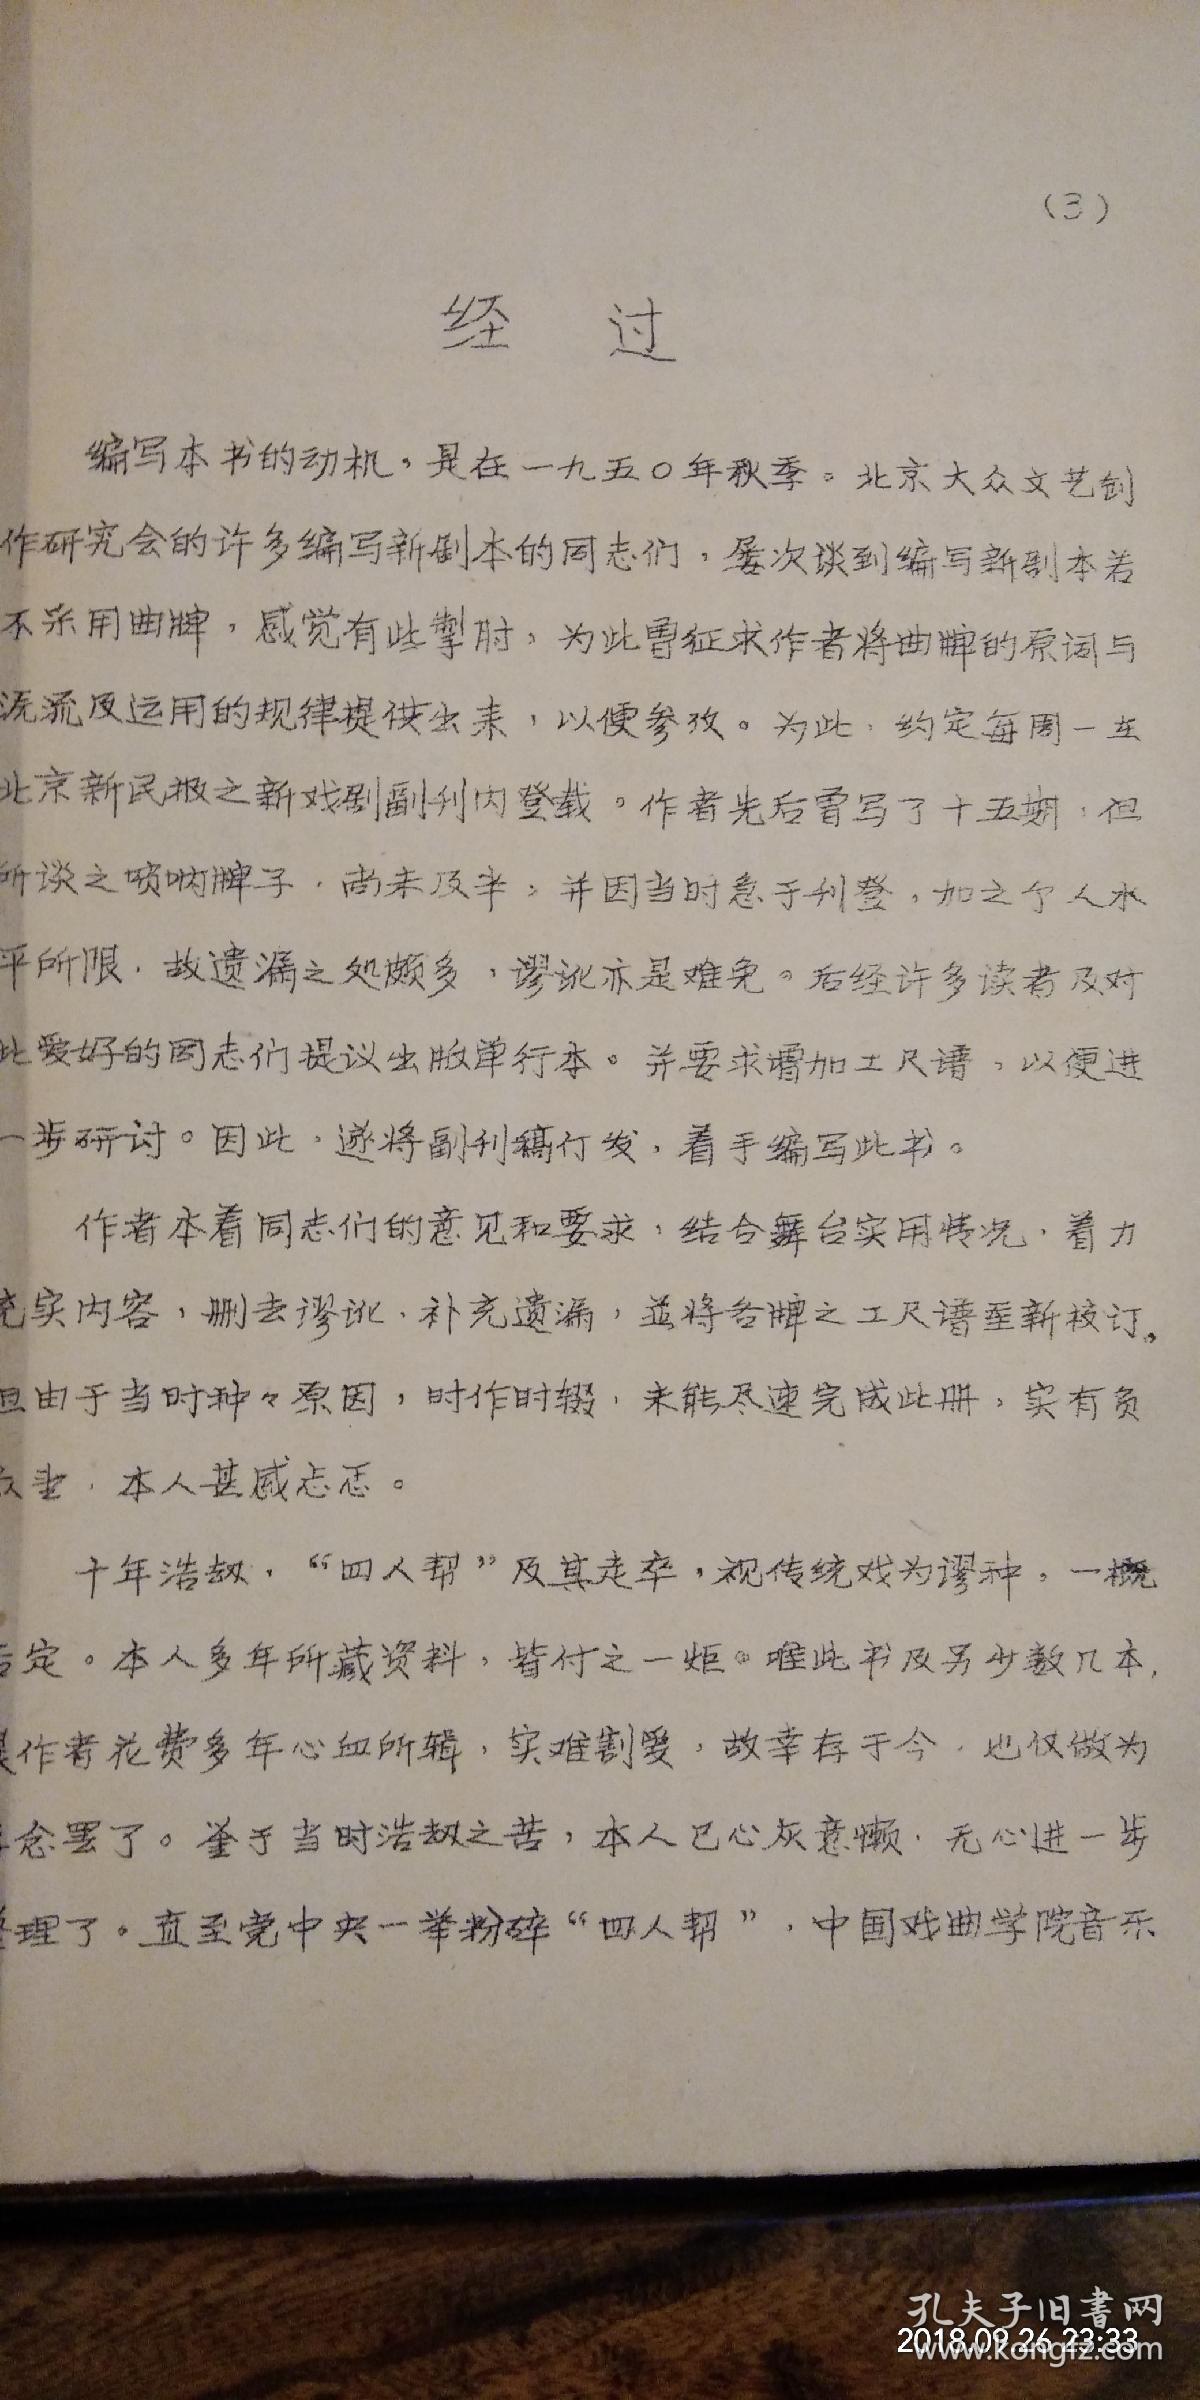 （3）
经 过
编写本书的动机，是在一九五〇年秋季。北京大众文艺创
作研究会的许多编写新剧本的同志们，屡次谈到编写新剧本若
不采用曲牌，感觉有些掣肘，为此曾征求作者将曲牌的原词与
源流及运用的规律提供出来，以便参攷。为此，约定每周一在
北京新民报之新戏剧副刊内登载。作者先后曾写了十五期，但
所谈之唢呐牌子，尚未及半，并因当时急于刊登，加之个人水
平所限，故遗漏之处颇多，谬讹亦是难免。后经许多读者及对
此爱好的同志们提议出版单行本。并要求增加工尺谱，以便进
一步研讨。因此，遂将副刊稿仃发，着手编写此书。
作者本着同志们的意见和要求，结合舞台实用情况，着力
充实内容，删去谬讹，补充遗漏，並将各牌之工尺谱重新校订。
但由于当时种々原因，时作时辍，未能尽速完成此册，实有负
众望，本人甚感忐忑。
十年浩劫，“四人帮”及其走卒，视传统戏为谬种，一概
否定。本人多年所藏资料，皆付之一炬。唯此书及另少数几本，
是作者花费多年心血所辑，实难割爱，故幸存于今，也仅做为
念罢了。鉴于当时浩劫之苦，本人已心灰意懒，无心进一步
整理了。直至党中央一举粉碎“四人帮”，中国戏曲学院音乐
孔夫子旧书网
2018.09.26 23:33
www.kongfz.com